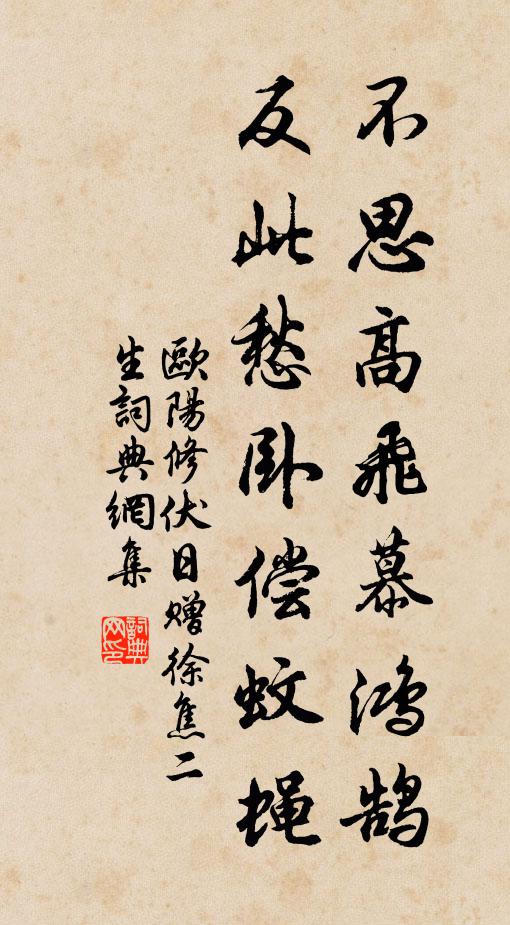 不思高飛慕鴻鵠
反此愁卧偿蚊蝇
歐陽修伏日赠徐焦二
生詞典網集
詞典
网印